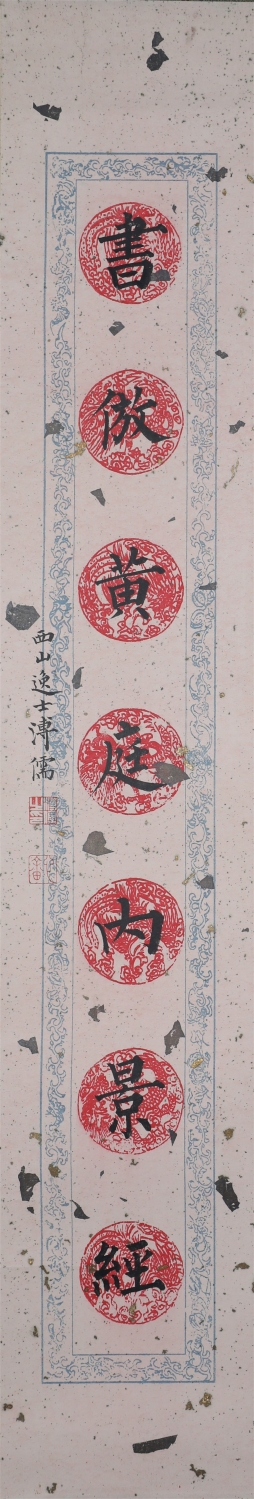 書倣黃庭內景經
西山逸士溥儒